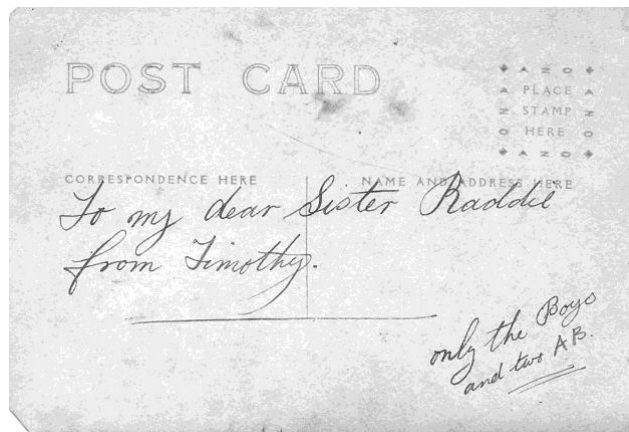 POST CARD
◆ A Z O ◆
A PLACE A
Z STAMP Z
O HERE O
◆ A Z O ◆
CORRESPONDENCE HERE
NAME AND ADDRESS HERE
To my dear Sister Raddie
from Timothy.
only the Boys
and two AB.